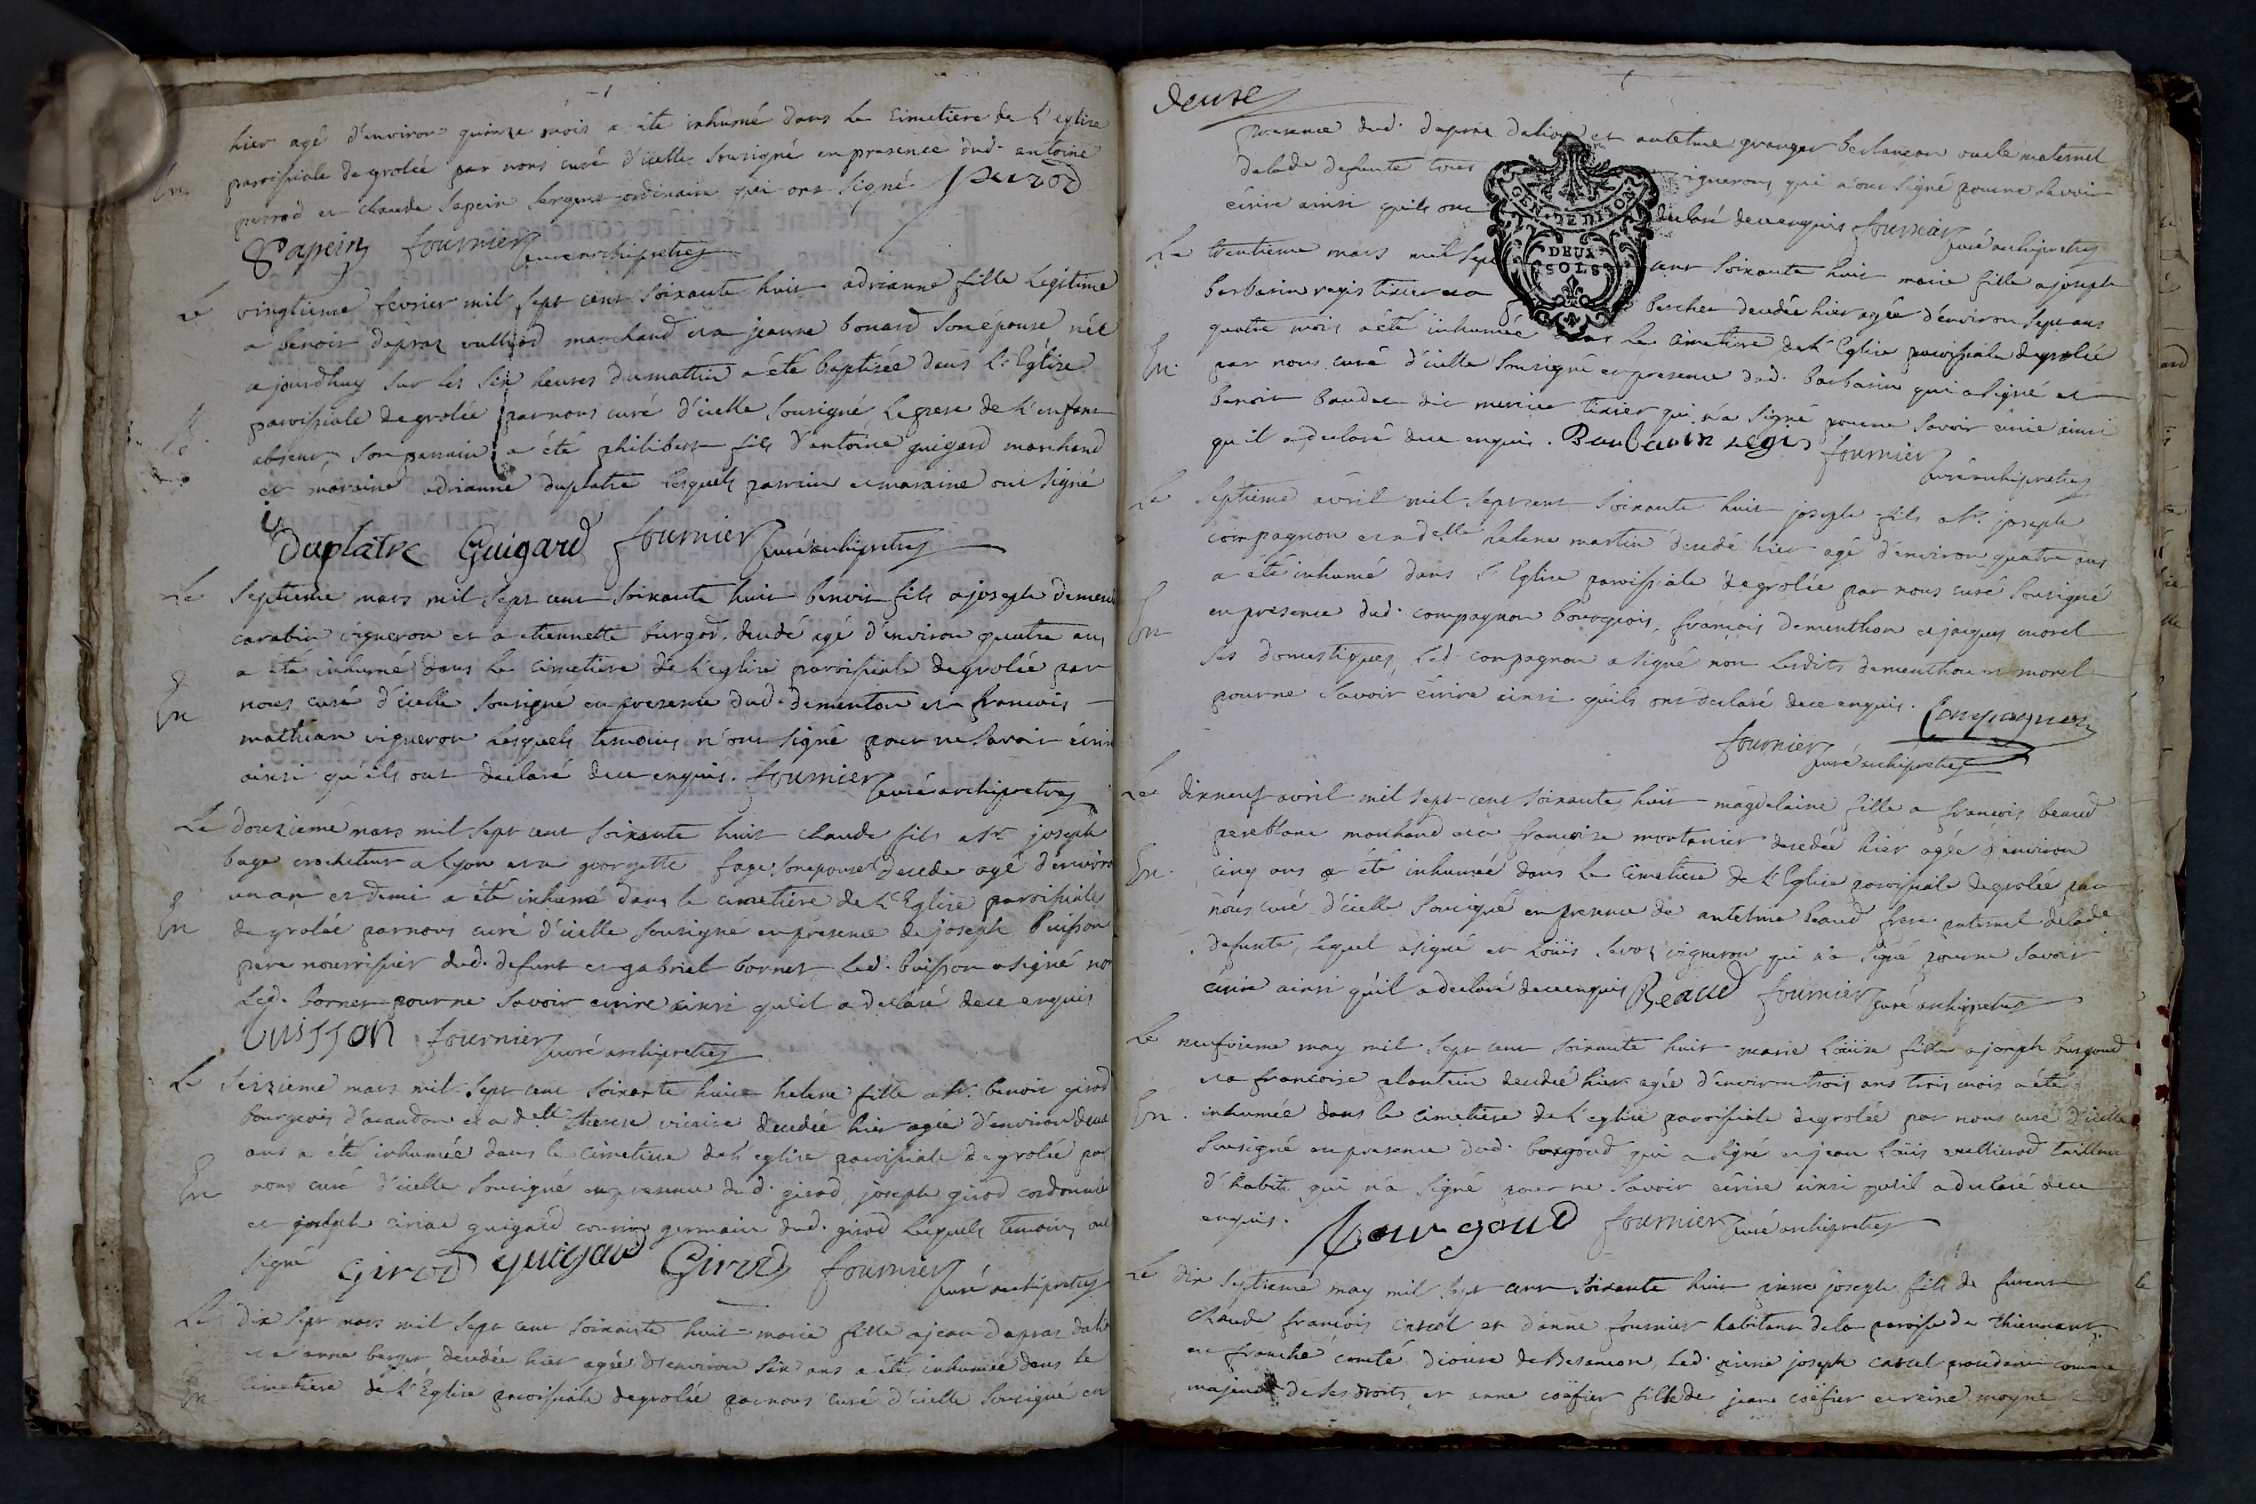 hier agé d'environ quinze mois a été inhumé dans le Cimetiere de L'eglise
En paroissiale de grolée par nous curé d'icelle sousigné en presence dud. antoine
perrod et claude Sapein sergent ordinaire qui ont signé. perrod
Sapein fournier curé archipretre
Le vingtieme fevrier mil sept cent soixante huit adrianne fille legitime
a benoit dapraz vulliod marchand et a jeanne bonard son épouse née
ajourdhuy sur les six heures du mattin a été baptisée dans L'Eglise
B. paroissiale de grolée par nous curé d'icelle sousigné, Le pere de L'enfant
absent, son parrain a été philibert fils d'antoine guigard marchand
et maraine adrianne duplatre lesquels parrain et maraine ont signé
Duplâtre Guigard fournier curé archipretre
Le septieme mars mil sept cent soixante huit benoit fils a joseph demen
carabin vigneron et a etiennette burgod, decedé agé d'environ quatre ans
a été inhumé dans le cimetiere de L'eglise paroissiale de grolée par
En nous curé d'icelle sousigné en presence dud. dementon et francois
mathian vigneron lesquels temoins n'ont signé pour ne savoir écrire
ainsi qu'ils ont declaré de ce enquis. fournier curé archipretre
Le douzieme mars mil sept cent soixante huit claude fils a Sr. joseph
bage crocheteur a lyon et a georgette fage son epouse decedé agé d'environ
un an et demi a été inhumé dans le cimetiere de L'Eglise paroissiale
En de grolée par nous curé d'icelle sousigné en presence de joseph buisson
pere nourrissier dud. defunt et gabriel bornet led. buisson a signé non
led. bornet pour ne savoir ecrire ainsi qu'il a declaré de ce enquis
buisson fournier curé archipretre
Le seizieme mars mil sept cent soixante huit helene fille a Sr. benoit girod
bourgeois d'arandon et a delle therese vicaire decedée hier agée d'environ deux
ans a été inhumée dans le cimetiere de L'eglise paroissiale de grolée par
En nous curé d'icelle sousigné en presence dud. girod, joseph girod cordonnier
et joseph ciriac guigard cousin germain dud. girod lesquels temoins ont
signé Girod guigard Girod fournier curé archipretre
Le dix sept mars mil sept cent soixante huit marie fille a jean dapraz dalivo
et a anne berger decedée hier agée d'environ six ans a été inhumée dans le
En cimetiere de L'Eglise paroissiale de grolée par nous curé d'icelle sousigné en
deuxe
presence dud. dapraz dalivo et antelme granger berlancon oncle maternel
de lade. defunte tous vignerons, qui n'ont signé pour ne savoir
écrire ainsi qu'ils ont declaré de ce enquis fournier curé archipretre
GEN. DE DIJON
DEUX
SOLS
Le trentieme mars mil sept cent soixante huit marie fille a joseph
barbarin regis tixier et a bercher decedée hier agée d'environ sept ans
quatre mois a été inhumée dans le cimetiere de L'Eglise paroissiale de grolée
En. par nous curé d'icelle sousigné en presence dud. barbarin qui a signé et
benoit baudet dit mercier tixier qui n'a signé pour ne savoir écrire ainsi
qu'il a declaré de ce enquis. Barbarin regis fournier
curé archipretre
Le septieme avril mil sept cent soixante huit joseph fils a Sr. joseph
compagnon et a delle helene martin decedé hier agé d'environ quatre ans
a été inhumé dans L'Eglise paroissiale de grolée par nous curé sousigné
En en presence dud. compagnon bourgeois, françois dementhon et jacques morel
ses domestiques, led. compagnon a signé non lesdits dementhon et morel
pour ne savoir écrire ainsi qu'ils ont declaré de ce enquis. Compagnon
fournier curé archipretre
Le dix neuf avril mil sept cent soixante huit magdelaine fille a francois beaud
pereblanc marchand et a françoise montanier decedée hier agée d'environ
En. cinq ans a été inhumée dans le Cimetiere de L'Eglise paroissiale de grolée par
nous curé d'icelle sousigné en presence de antelme beaud frere paternel de lade
defunte, lequel a signé et loüis vigneron qui n'a signé pour ne savoir
écrire ainsi qu'il a declaré de ce enquis Beaud fournier curé archipretre
Le neufvieme may mil sept cent soixante huit marie loüise fille a joseph burgoud
et a francoise plantin decedée hier agée d'environ trois ans trois mois a été
En. inhumée dans le cimetiere de L'eglise paroissiale de grolée par nous curé d'icelle
sousigné en presence dud. bourgoud qui a signé et jean loüis vulliod tailleur
d'habit qui n'a signé pour ne savoir écrire ainsi qu'il a declaré de ce
enquis. Bourgoud fournier curé archipretre
Le dix septieme may mil sept cent soixante huit pierre joseph fils de furent
claude françois carrel et d'anne fournier habitant de la paroisse de thiennans
en franche comté diocese de Besancon, led. pierre joseph carrel procedant comme
majeur de ses droits, et anne coëfier fille de jean coëfier et reine moyne